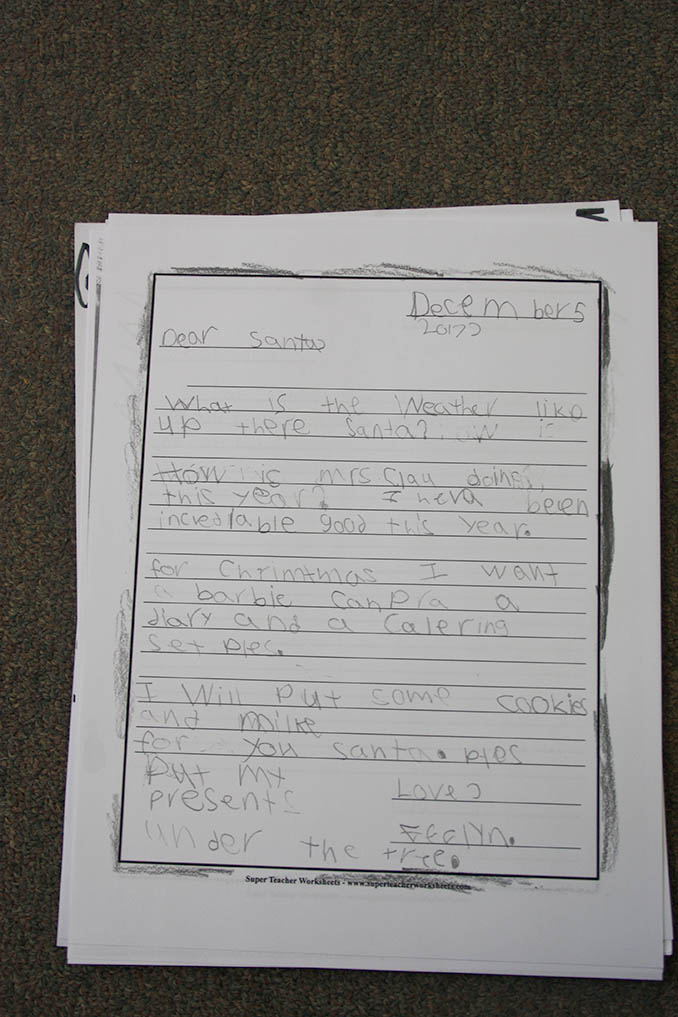 December 5
2017,
Dear Santa,
What is the Weather like
up there Santa?
How is mrs Clau doing,
this year? I heva been
incredable good this year.
for Chrimtmas I want
a barbie canpra a
diary and a Calering
set ples.
I Will put some cookies
and milke
for you santa. ples
Put my
presents
Love,
under the tree.